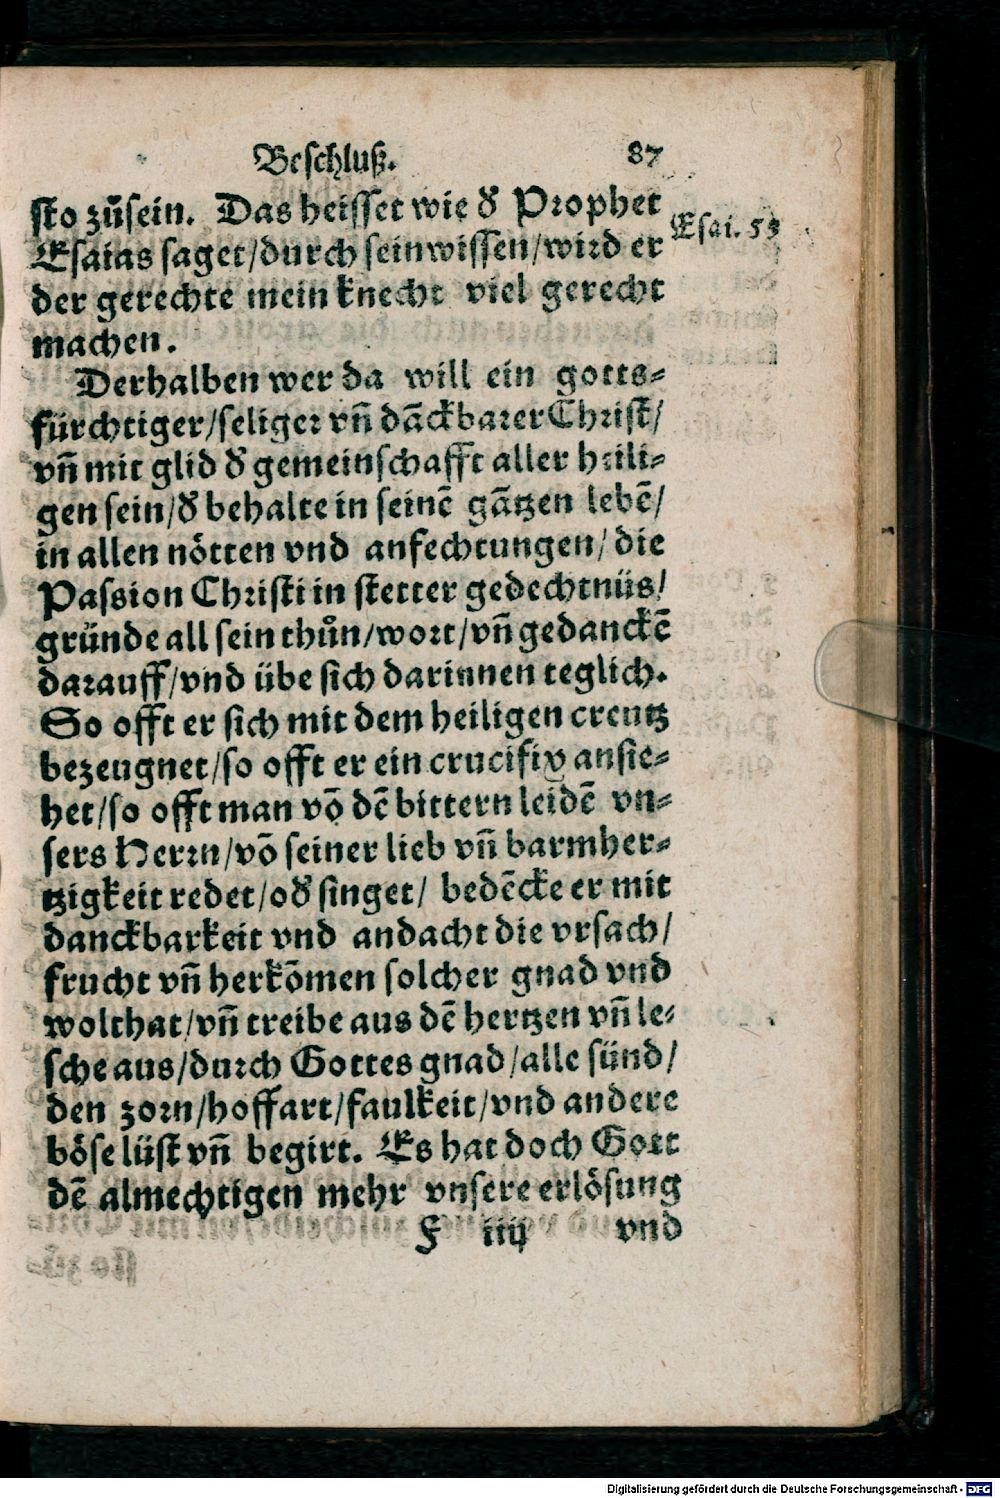 Beſchluß. 87
ſto zůſein. Das heiſſet wie d̕ Prophet
Eſai. 53
Eſaias ſaget/durch ſein wiſſen/wird er
der gerechte mein knecht viel gerecht
machen.
Derhalben wer da will ein gotts⸗
fürchtiger/ſeliger vñ dãckbarer Chriſt/
vñ mit glid d̕ gemeinſchafft aller heili⸗
gen ſein/d̕ behalte in ſeinẽ gãtzen lebẽ/
in allen nötten vnd anfechtungen/die
Paſsion Chriſti in ſtetter gedechtnüs/
gründe all ſein thůn/wort/vñ gedanckẽ
darauff/vnd übe ſich darinnen teglich.
So offt er ſich mit dem heiligen creutz
bezeugnet/ſo offt er ein crucifix anſie⸗
het/ſo offt man võ dẽ bittern leidẽ vn⸗
ſers Herrn/võ ſeiner lieb vñ barmher⸗
tzigkeit redet/od̕ ſinget/ bedẽcke er mit
danckbarkeit vnd andacht die vrſach/
frucht vñ herkõmen ſolcher gnad vnd
wolthat/vñ treibe aus dẽ hertzen vñ le⸗
ſche aus/durch Gottes gnad/alle ſünd/
den zorn/hoffart/faulkeit/vnd andere
böſe lüſt vñ begirt. Es hat doch Gott
dẽ almechtigen mehr vnſere erlöſung
F iiij vnd
Digitalisierung gefördert durch die Deutsche Forschungsgemeinschaft - DFG